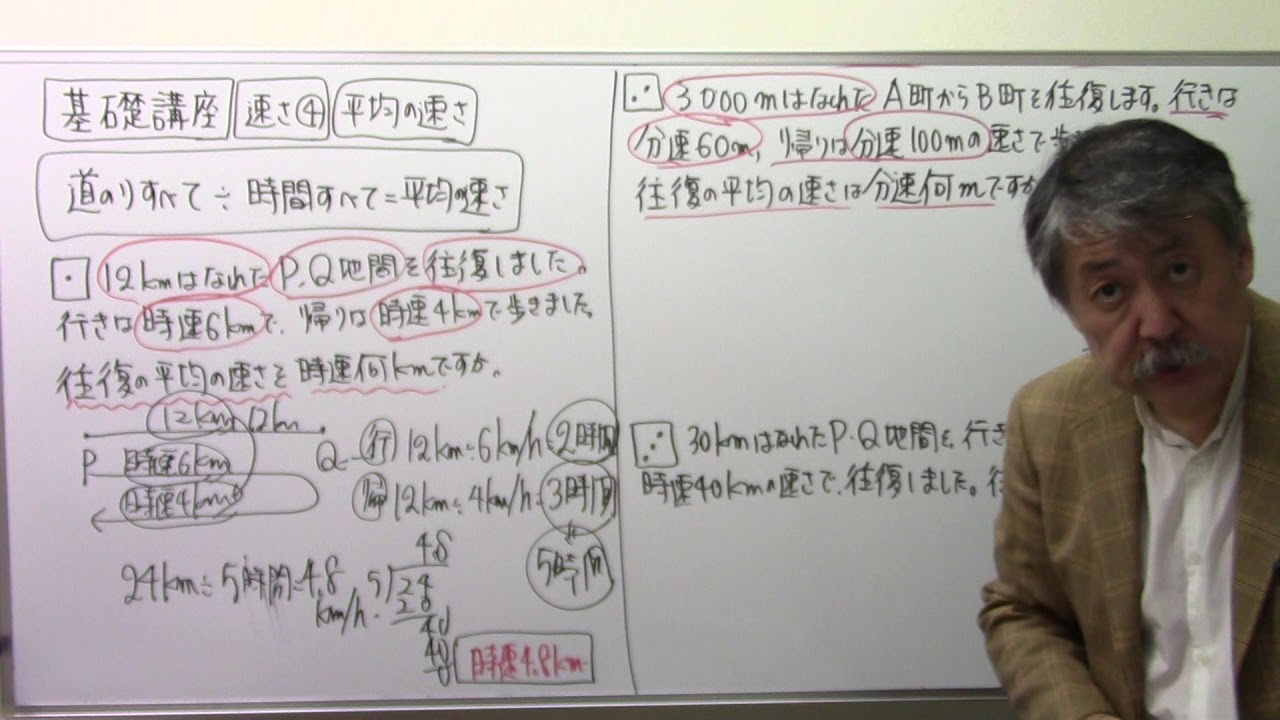 基礎講座 速さ④ 平均の速さ
道のりすべて÷時間すべて=平均の速さ
12kmはなれたP.Q地間を往復しました。
行きは時速6kmで、帰りは時速4kmで歩きました。
往復の平均の速さを時速何kmですか。
12km 12km
P 時速6km Q
時速4km
行 12km÷6km/h=2時間
帰 12km÷4km/h=3時間
5時間
24km÷5時間=4.8
km/h
48
5)24
20
40
40
時速4.8km
3000mはなれたA町からB町を往復します。行きは
分速60m、帰りは分速100mの速さで歩
往復の平均の速さは分速何mですか
30kmはなれたP・Q地間を、行き
時速40kmの速さで、往復しました。往